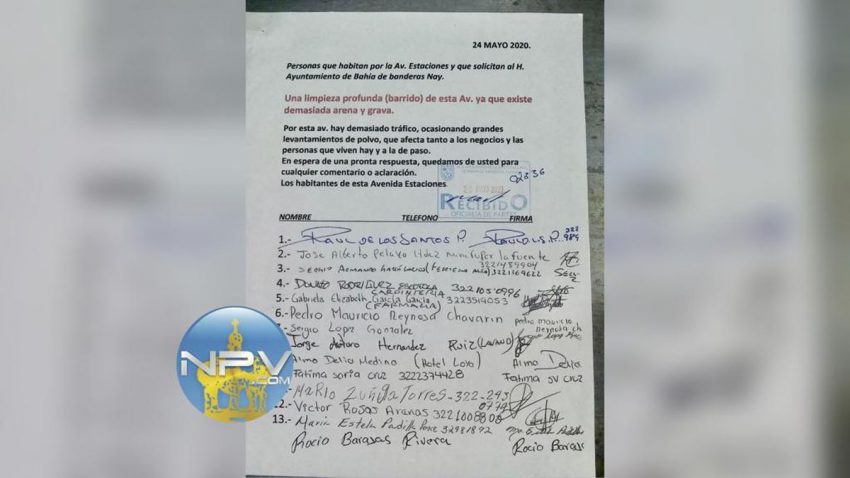 24 MAYO 2020.
Personas que habitan por la Av. Estaciones y que solicitan al H.
Ayuntamiento de Bahía de banderas Nay.
Una limpieza profunda (barrido) de esta Av. ya que existe
demasiada arena y grava.
Por esta av. hay demasiado tráfico, ocasionando grandes
levantamientos de polvo, que afecta tanto a los negocios y las
personas que viven hay y a la de paso.
En espera de una pronta respuesta, quedamos de usted para
cualquier comentario o aclaración.
Los habitantes de esta Avenida Estaciones
02336
RECIBIDO
OFICIALIA DE PARTES
NOMBRE TELEFONO FIRMA
1.- RAUL DE LOS SANTOS P.
2.- Jose Alberto Pelayo Hdez minisuper la fuente
3.-
4.- RODRIGUEZ 3221050996
CARPINTERIA
5.- Gabriela Elizabeth Garcia Garcia 3223519053
(FARMACIA)
6.- Pedro Mauricio Reynosa Chavarin pedro mauricio
Reynosa ch
Sergio Lopez Gonzalez
Jorge Arturo Hernandez Ruiz
Alma Delia Medina (Hotel) Alma Delia
Fatima santa cruz 3222374428 Fatima cruz
Mario Zuñiga Torres-322-293
0774
12.- Victor Rojas Arenas 3221008800
13.- Maria Estela Padilla
Rocio Barajas Rivera Rocio Barajas
NPV
.COM